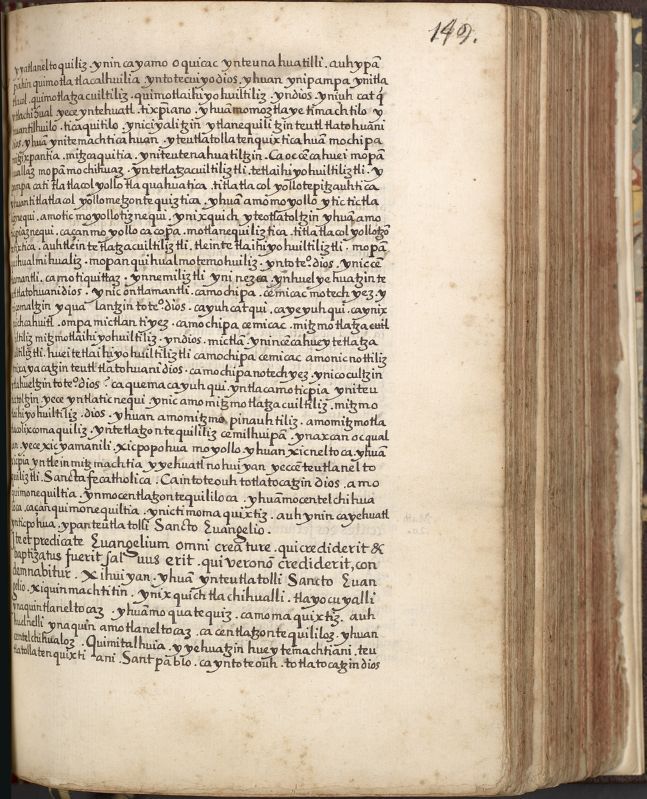 149.
yvatlaneltoquiliz. ynin cayamo oquicac ynteunahuatilli. auh ypā
quimotlatlacalhuilia yntotecuiyo dios. yhuan ynipampa ynitla
quimotlatzacuiltiliz. quimotlaihiyohuiltiliz. yndios. yniuh cat q̄
tlachihual yece yntehuatl. tixp̄iano. yhuā momoztlaye timachtilo y
huantilhuilo. ticaquitilo. yniciyaliztzin ytlanequilitzin teutl tlatohuani
dios. yhuā ynitemachtica huan. yteutlatollatenquixtica huā mochipa
mixpantia. mitzcaquitia. yniteutenahuatiltzin. Ca occēcahuei mopā
huallaz mopā mochihuaz. yntetlatzacuiltiliztli. tetlaihiyohuiltiliztli. y
pampa catitlatlacolyollotlaquahuatica. titlatlacolyollotepitzauhtica
yhuan titlatlacolyollometzontequiztica. yhuā amo moyollo ytic tictla
liznequi. amotic moyollotiznequi. ynixquich yteotlatoltzin yhuā amo
ticpiaznequi. caçan moyollocacopa. motlanequiliztica. titlatlacolyollotzō
tetixtica. auh tlein tetlatzacuiltiliztli. tlein tetlaihiyohuiltiliztli. mopan
quihualmihualiz. mopan quihualmotemohuiliz. yntoteº. dios. yniccē
tlamantli. camo tiquittaz. ynnemiliztli yninezca ynhuel yehuatzin te
utl tlatohuani dios. ynic ontlamantli. camochipa. cemicac motech yez. y
tlatzin toteº. dios. ca yuh catqui. caye yuhqui. caynix
quichcahuitl. ompa mictlan tiyez. camochipa cemicac. mitzmotlatzacuil
tiliz mitzmotlaihiyohuiltiliz. yndios. mictlā ynincēcahuey tetlatza
cuiltiliztli. huei tetlaihiyohuiltiliztli camochipa cemicac amonicnottiliz
teutl tlatohuani dios. camochipa notech yez. ynicocultzin
toteº dios? ca quemaca yuh qui. yntlacamo ticpia yniteu
tlatoltzin. yece yntlaticnequi. ynic amo mitzmotlatzacuiltiliz. mitzmo
tlaihiyohuiltiliz. dios. yhuan amo mitzmopinauhtiliz. amo mitzmotla
yntetlatzontequililiz cemilhuipā. ynaxcan oc qual
can yece xicyamanili. xicpopohua moyollo yhuan xicneltoca. yhuā
xicpia yntlein mitzmachtia yyehuatl nohuiyan yeccē teutlanelto
quiliztli. Sancta fe catholica. Cain toteouh totlatocatzin dios. amo
quimonequiltia. ynmocentlatzontequililoca. yhuā mocentelchihua
loca, caçan quimonequiltia. ynictimomaquixtiz. auh ynin cayehuatl
ynticpohua. ypan teutlatolli Sancto Euangelio.
Ite et predicate Euangelium omni creature. qui crediderit &
baptizatus fuerit saluus erit. qui vero non crediderit, con
demnabitur. Xihuiyan. yhuā ynteutlatolli Sancto Euan
gelio. xiquinmachtitin. ynixquich tlachihualli. tlayocuyalli
ynaquin tlaneltocaz. yhuā moquatequiz. camomaquixtiz. auh
huelhelli ynaquin amo tlaneltocaz. ca centlatzontequililoz. yhuan
centelchihualoz. Quimitalhuia. yyehuatzin huey temachtiani. teu
tlatollatenquixtiani. Sant pablo. cayntoteouh. totlatocatzin dios